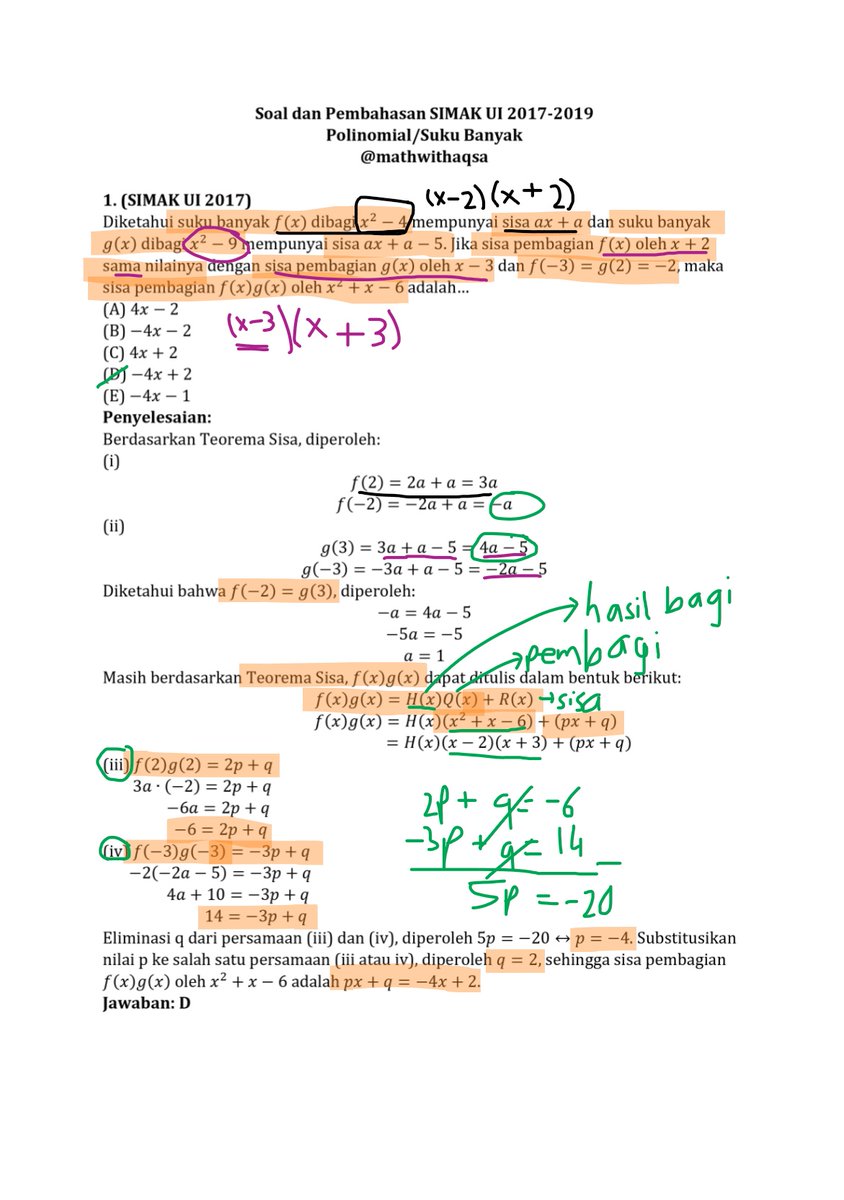 Soal dan Pembahasan SIMAK UI 2017-2019
Polinomial/Suku Banyak
@mathwithaqsa
1. (SIMAK UI 2017)
(x-2)(x+2)
Diketahui suku banyak f(x) dibagi x² − 4 mempunyai sisa ax + a dan suku banyak
g(x) dibagi x² − 9 mempunyai sisa ax + a − 5. Jika sisa pembagian f(x) oleh x + 2
sama nilainya dengan sisa pembagian g(x) oleh x − 3 dan f(−3) = g(2) = −2, maka
sisa pembagian f(x)g(x) oleh x² + x − 6 adalah...
(A) 4x − 2
(B) −4x − 2
(x-3)(x+3)
(C) 4x + 2
(D) −4x + 2
(E) −4x − 1
Penyelesaian:
Berdasarkan Teorema Sisa, diperoleh:
(i)
f(2) = 2a + a = 3a
f(−2) = −2a + a = −a
(ii)
g(3) = 3a + a − 5 = 4a − 5
g(−3) = −3a + a − 5 = −2a − 5
Diketahui bahwa f(−2) = g(3), diperoleh:
hasil bagi
−a = 4a − 5
−5a = −5
pembagi
a = 1
Masih berdasarkan Teorema Sisa, f(x)g(x) dapat ditulis dalam bentuk berikut:
f(x)g(x) = H(x)Q(x) + R(x) →sisa
f(x)g(x) = H(x)(x² + x − 6) + (px + q)
= H(x)(x − 2)(x + 3) + (px + q)
(iii) f(2)g(2) = 2p + q
3a · (−2) = 2p + q
−6a = 2p + q
−6 = 2p + q
(iv) f(−3)g(−3) = −3p + q
−2(−2a − 5) = −3p + q
4a + 10 = −3p + q
14 = −3p + q
2p + q = -6
-3p + q = 14
5p = -20
Eliminasi q dari persamaan (iii) dan (iv), diperoleh 5p = −20 ↔ p = −4. Substitusikan
nilai p ke salah satu persamaan (iii atau iv), diperoleh q = 2, sehingga sisa pembagian
f(x)g(x) oleh x² + x − 6 adalah px + q = −4x + 2.
Jawaban: D